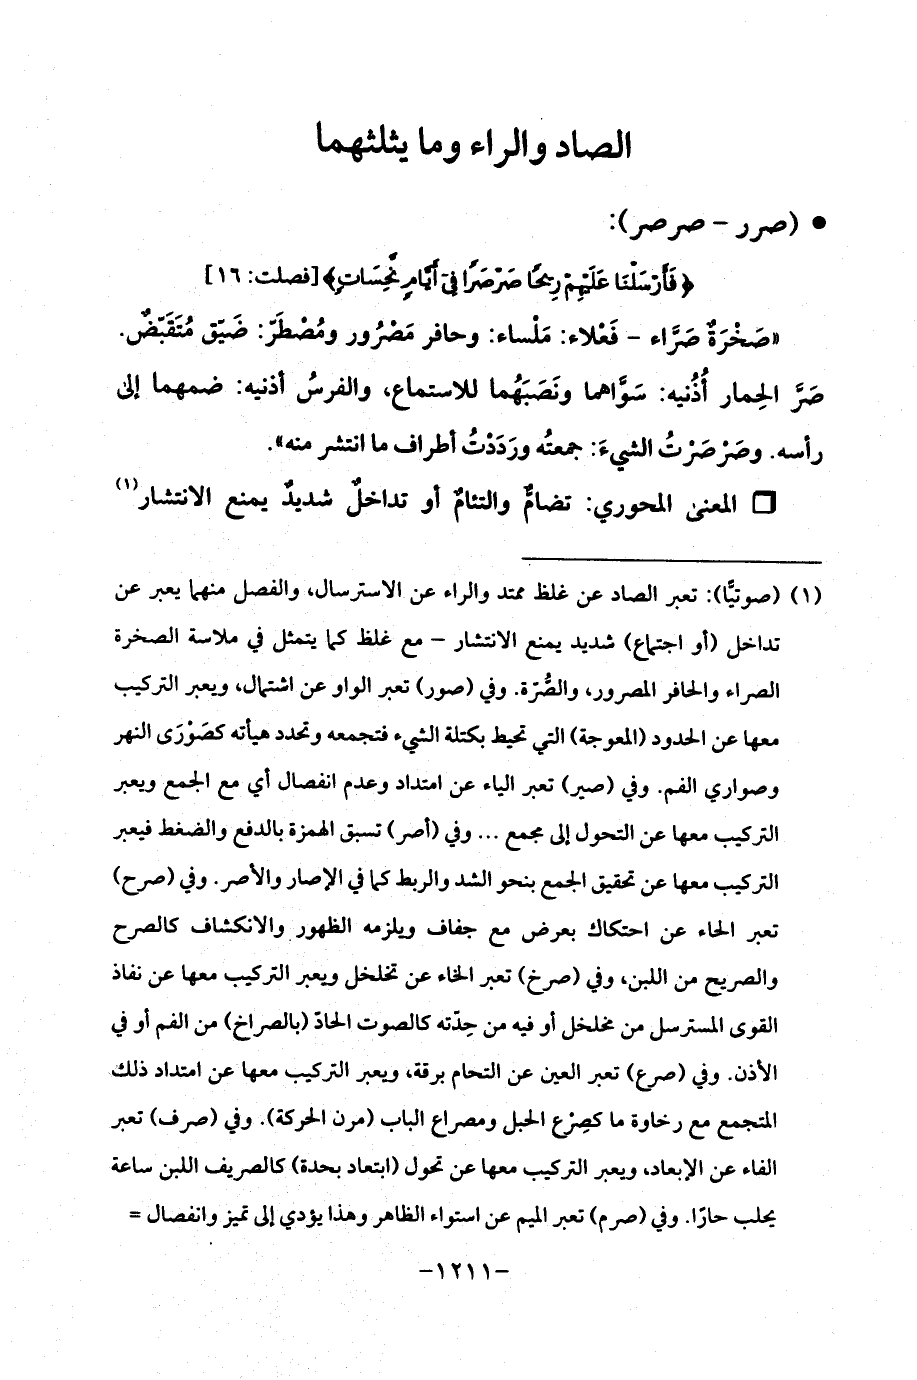 الصاد والراء وما يثلثهما
• (صرر - صرصر):
﴿فَأَرْسَلْنَا عَلَيْهِمْ رِيحًا صَرْصَرًا فِي أَيَّامٍ نَّحِسَاتٍ﴾ [فصلت: ١٦]
«صَخْرَةٌ صَرَّاء - فَعْلاء: مَلْساء: وحافر مَصْرُور ومُصْطَرّ: ضَيّق مُتَقَبّضٌ.
صَرَّ الحِمار أُذُنيه: سَوَّاهما ونَصَبَهُما للاستماع، والفرسُ أذنيه: ضمهما إلى
رأسه. وصَرْصَرْتُ الشيءَ: جمعتُه ورَدَدْتُ أطراف ما انتشر منه».
❒ المعنى المحوري: تضامٌّ والتئامٌ أو تداخلٌ شديدٌ يمنع الانتشار(١)
(١) (صوتيًّا): تعبر الصاد عن غلظ ممتد والراء عن الاسترسال، والفصل منهما يعبر عن
تداخل (أو اجتماع) شديد يمنع الانتشار - مع غلظ كما يتمثل في ملاسة الصخرة
الصراء والحافر المصرور، والصُّرّة. وفي (صور) تعبر الواو عن اشتمال، ويعبر التركيب
معها عن الحدود (المعوجة) التي تحيط بكتلة الشيء فتجمعه وتحدد هيأته كصَوْرَى النهر
وصواري الفم. وفي (صير) تعبر الياء عن امتداد وعدم انفصال أي مع الجمع ويعبر
التركيب معها عن التحول إلى مجمع ... وفي (أصر) تسبق الهمزة بالدفع والضغط فيعبر
التركيب معها عن تحقيق الجمع بنحو الشد والربط كما في الإصار والأصر. وفي (صرح)
تعبر الحاء عن احتكاك بعرض مع جفاف ويلزمه الظهور والانكشاف كالصرح
والصريح من اللبن، وفي (صرخ) تعبر الخاء عن تخلخل ويعبر التركيب معها عن نفاذ
القوى المسترسل من مخلخل أو فيه من حِدّته كالصوت الحادّ (بالصراخ) من الفم أو في
الأذن. وفي (صرع) تعبر العين عن التحام برقة، ويعبر التركيب معها عن امتداد ذلك
المتجمع مع رخاوة ما كصِرْع الحبل ومصراع الباب (مرن الحركة). وفي (صرف) تعبر
الفاء عن الإبعاد، ويعبر التركيب معها عن تحول (ابتعاد بحدة) كالصريف اللبن ساعة
يحلب حارًا. وفي (صرم) تعبر الميم عن استواء الظاهر وهذا يؤدي إلى تميز وانفصال =
-١٢١١-